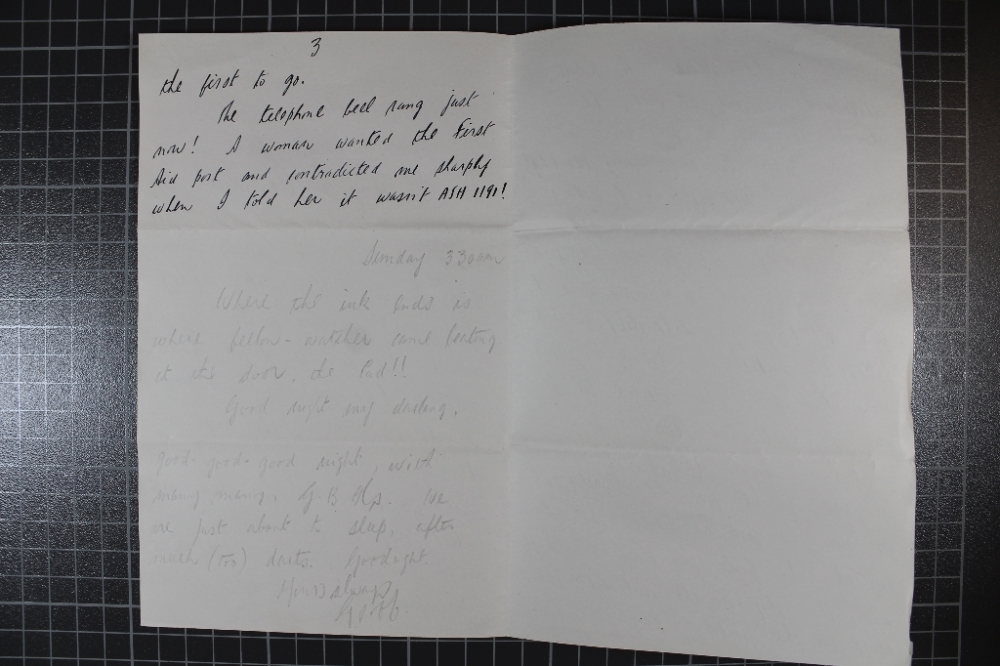 3
the first to go.
The telephone bell rang just
now! A woman wanted the First
Aid post and contradicted me sharply
when I told her it wasn't ASH 1191!
Sunday 3 30am
Where the ink ends is
where fellow-watcher came beating
at the door, the lad!!
Good night my darling.
Good-good-good night, with
many many. G.B.
are just about to sleep, after
much (too) darts. Goodnight.
Yours always